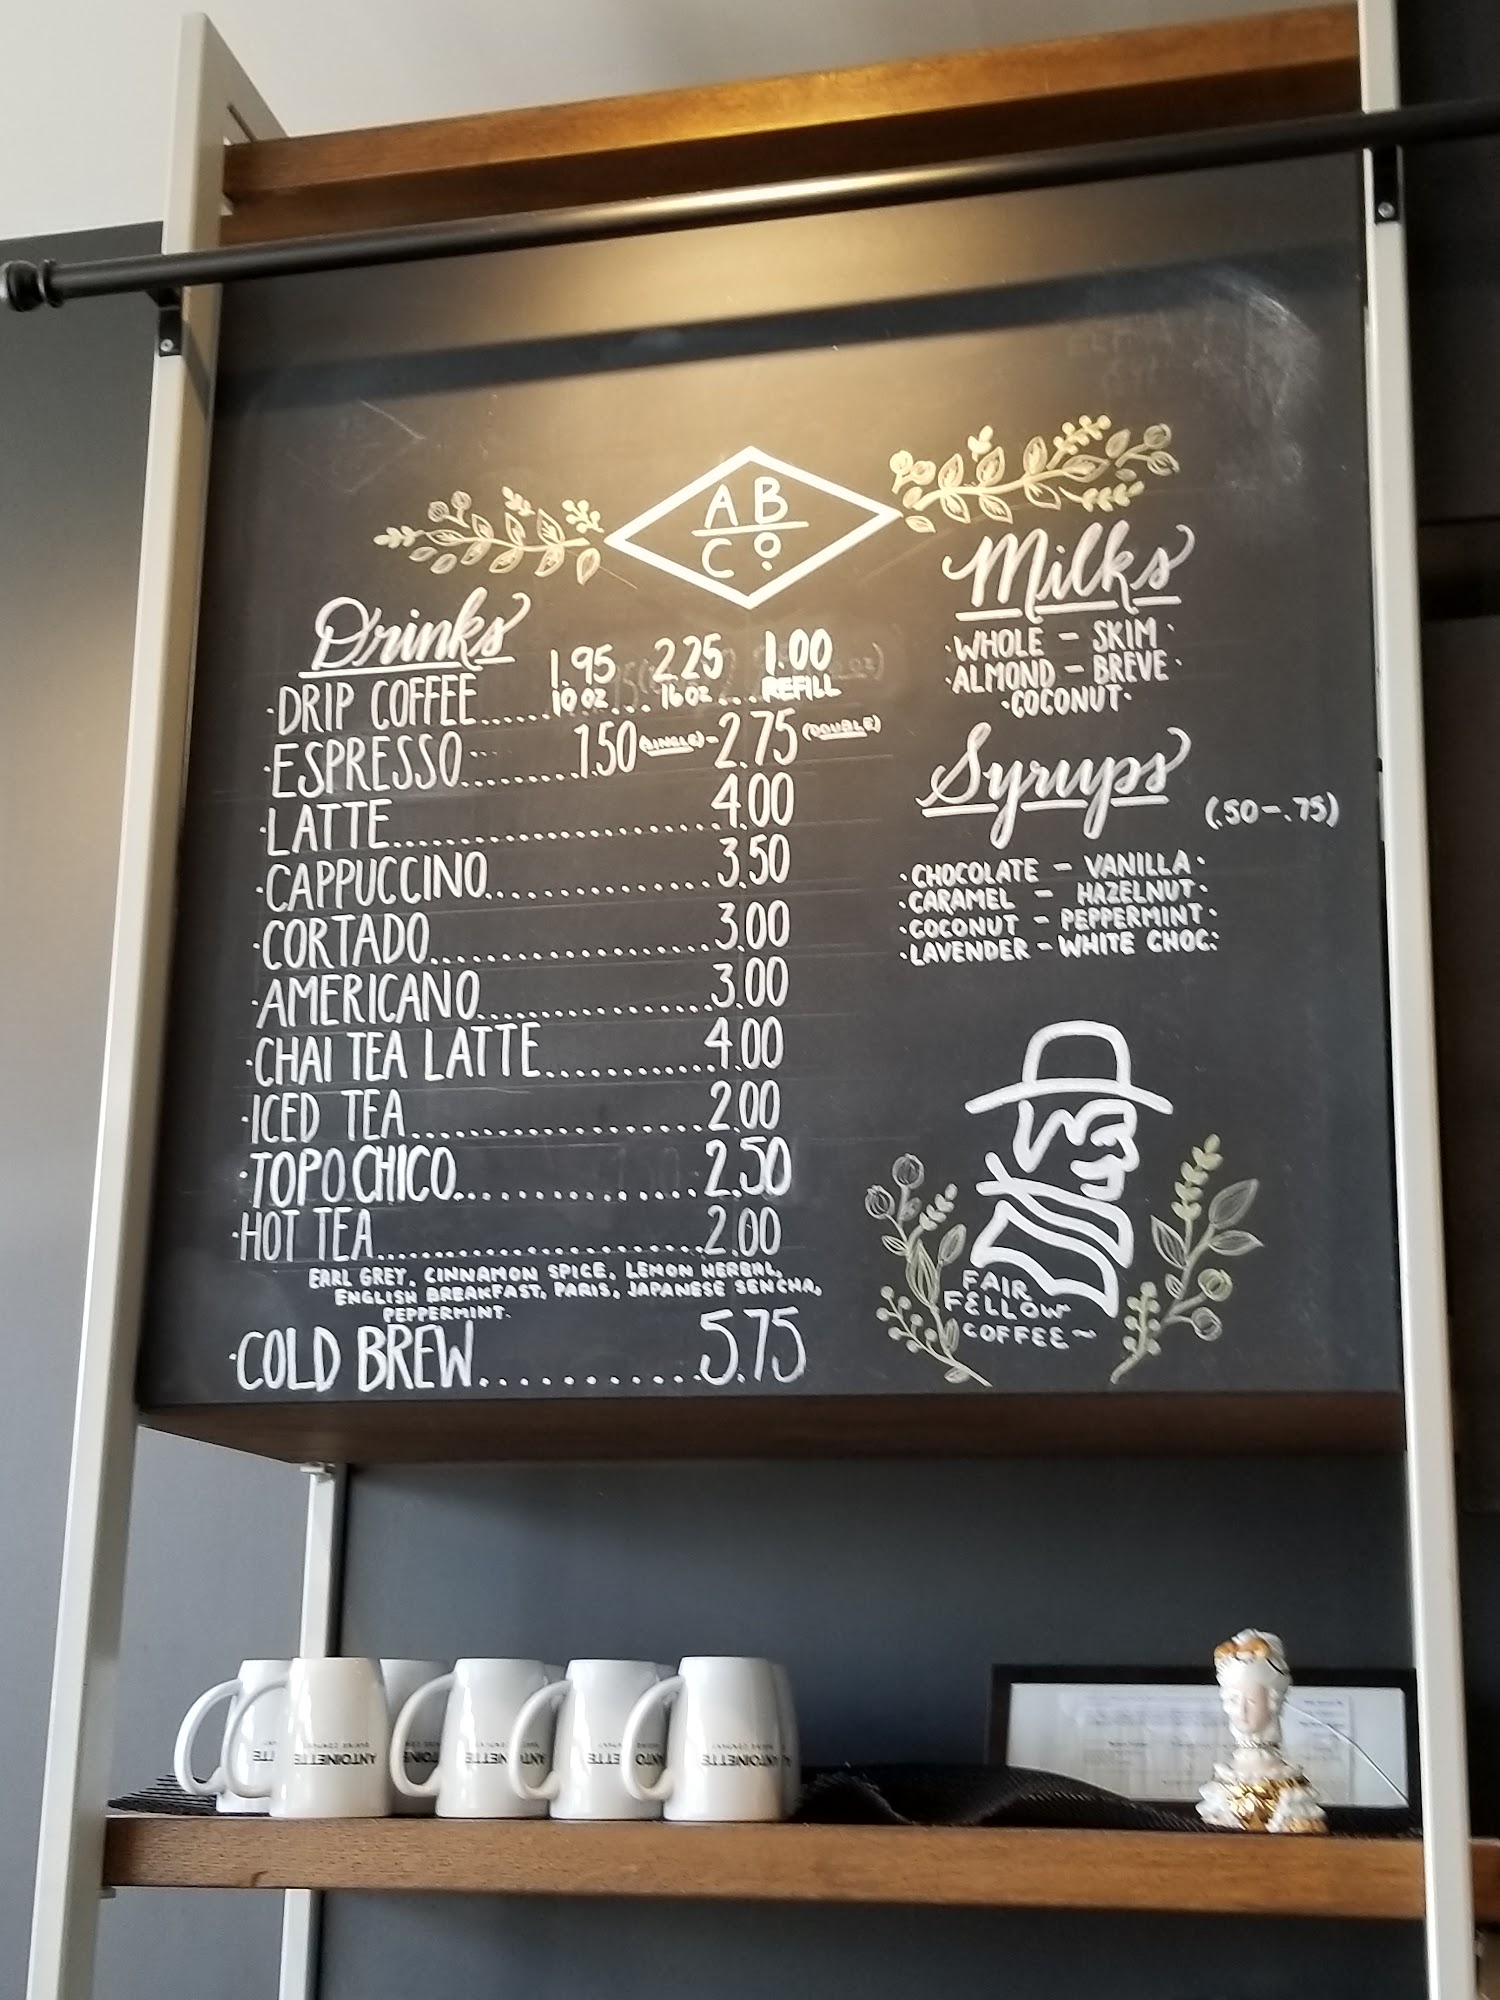 A B
Co
Drinks
1.95 2.25 1.00
10 oz 16 oz REFILL
·DRIP COFFEE
·ESPRESSO 1.50 (SINGLE) - 2.75 (DOUBLE)
·LATTE 4.00
·CAPPUCCINO 3.50
·CORTADO 3.00
·AMERICANO 3.00
·CHAI TEA LATTE 4.00
·ICED TEA 2.00
·TOPO CHICO 2.50
·HOT TEA 2.00
EARL GREY, CINNAMON SPICE, LEMON HERBAL,
ENGLISH BREAKFAST, PARIS, JAPANESE SENCHA,
PEPPERMINT.
·COLD BREW 5.75
Milks
·WHOLE - SKIM·
·ALMOND - BREVE·
·COCONUT·
Syrups
(.50-.75)
·CHOCOLATE - VANILLA·
·CARAMEL - HAZELNUT·
·COCONUT - PEPPERMINT·
·LAVENDER - WHITE CHOC.·
FAIR
FELLOW
COFFEE~
ANTOINETTE
ANTOINETTE